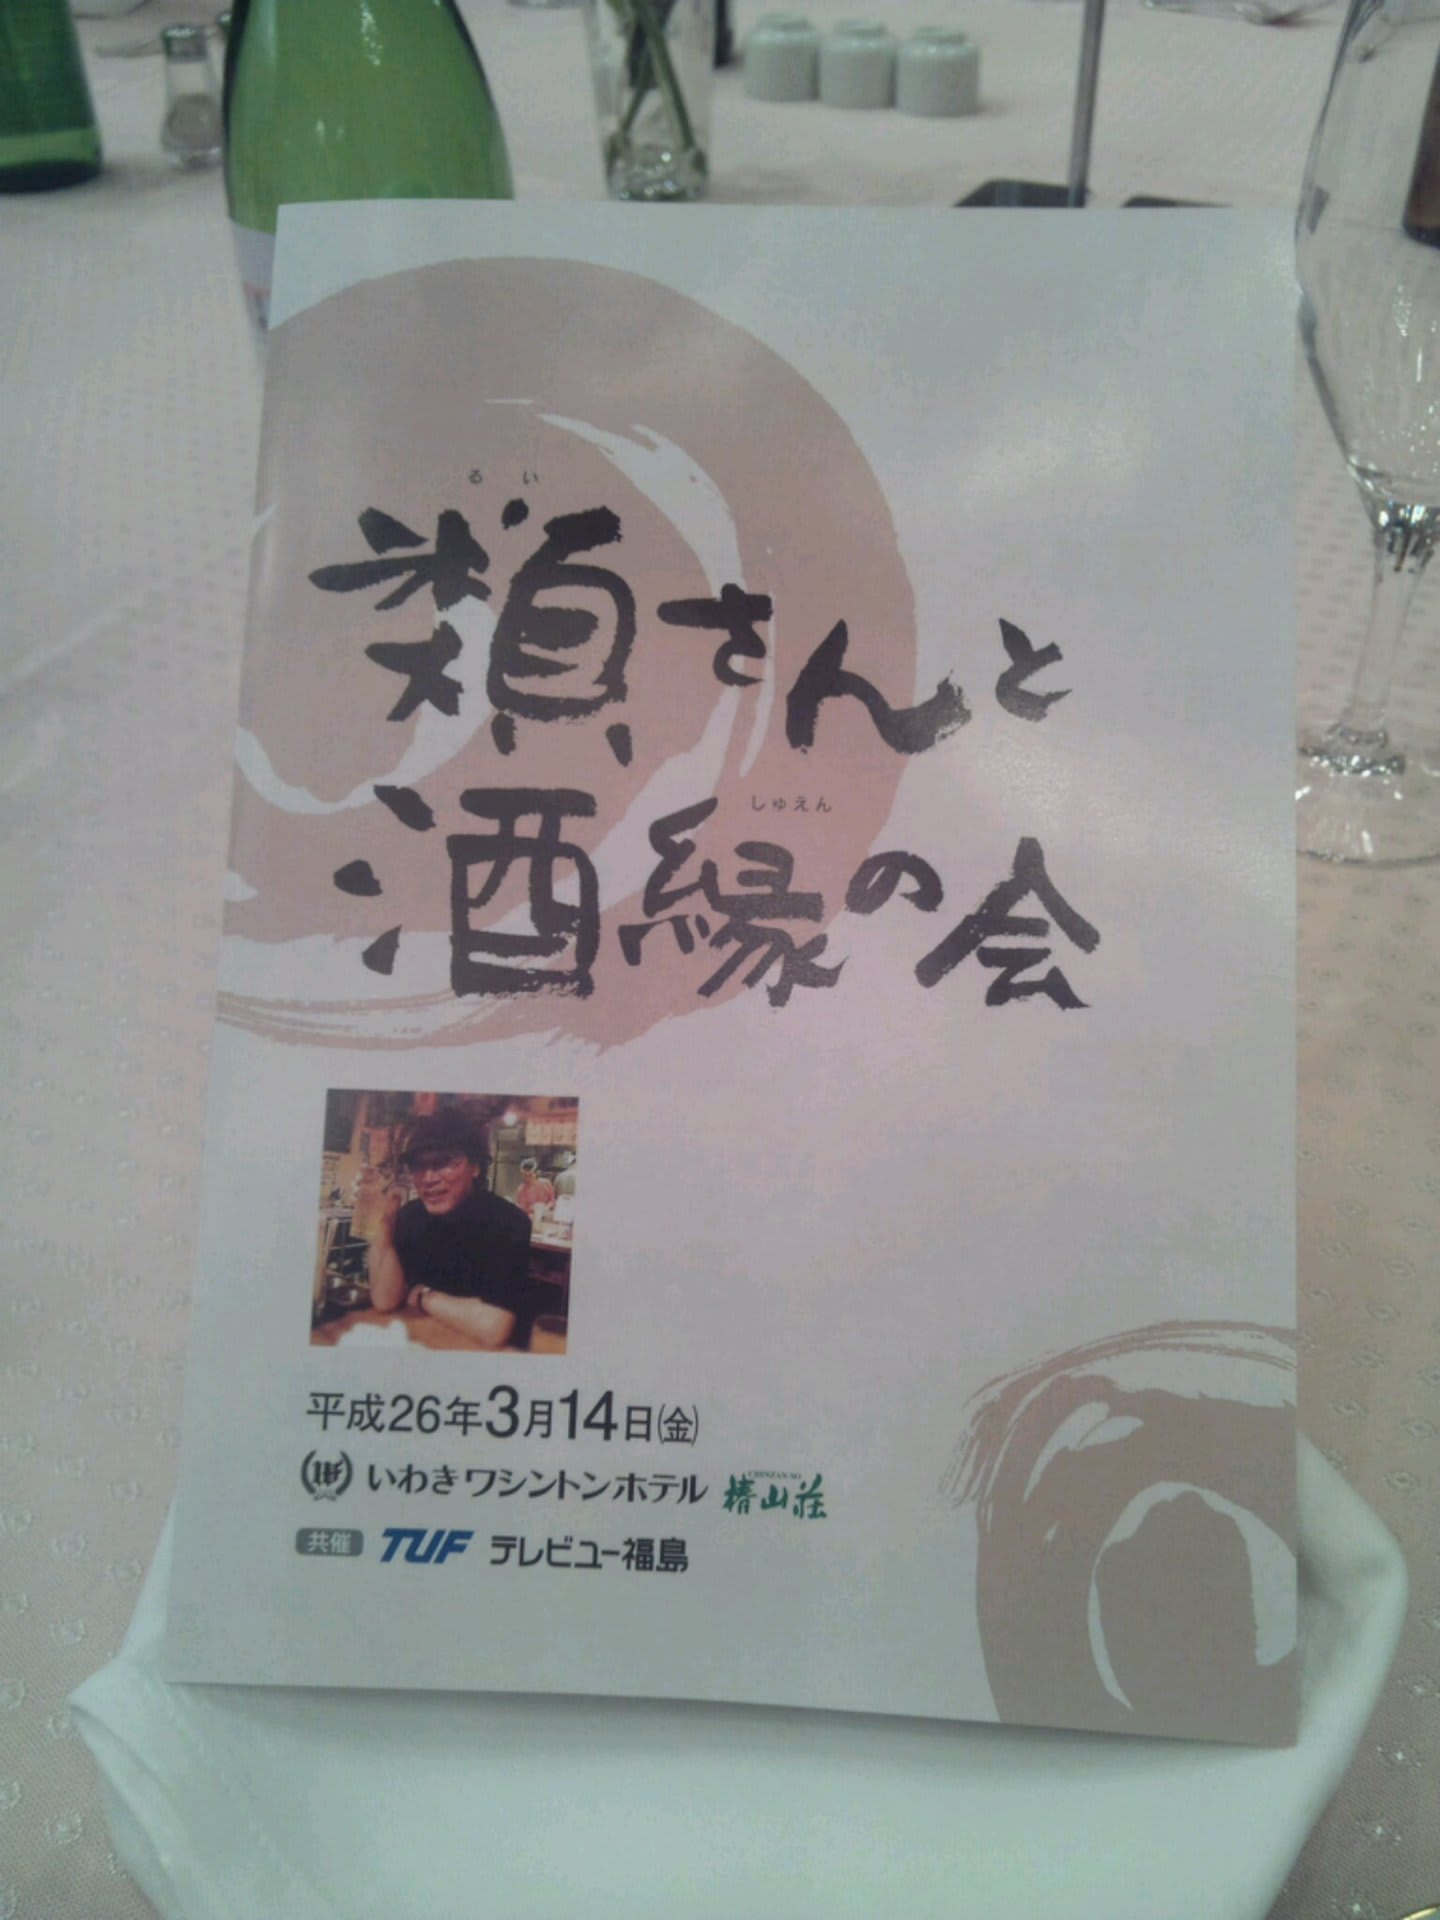 るい
類さんと
しゅえん
酒縁の会
平成26年3月14日(金)
いわきワシントンホテル CHINZAN-SO 椿山荘
共催 TUF テレビュー福島